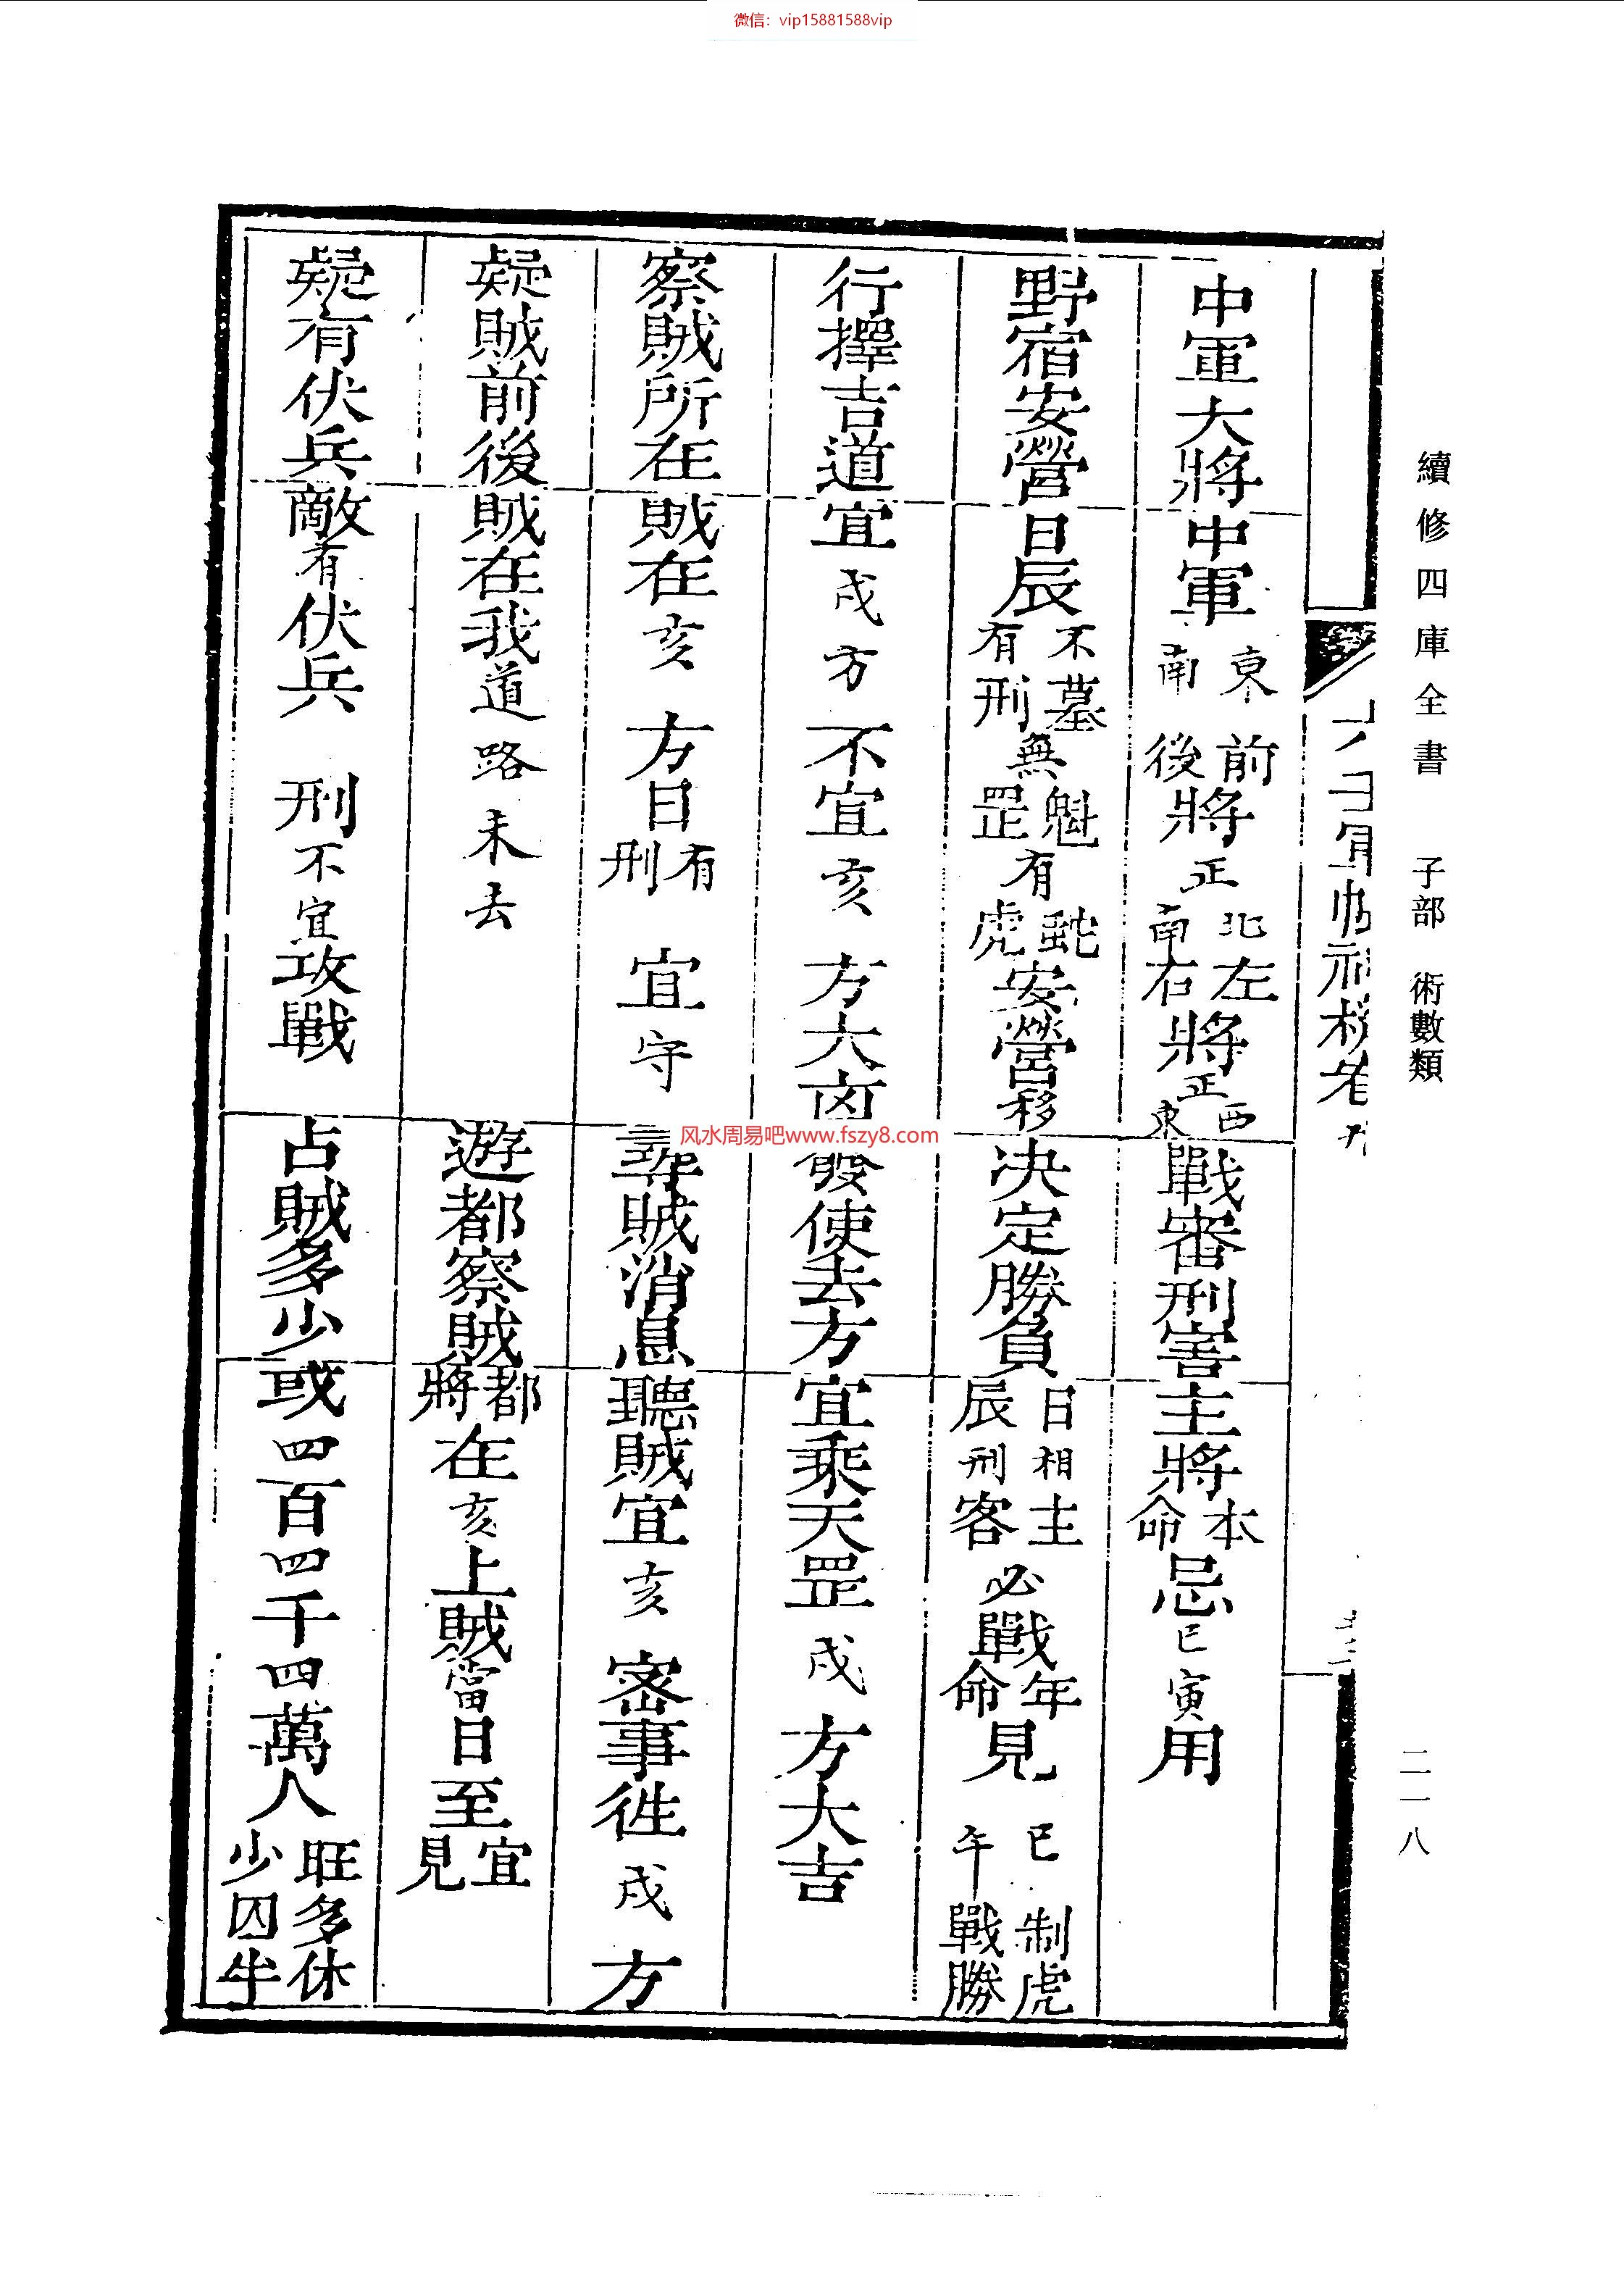 微信：vip15881588vip
續修四庫全書 子部 術數類
二一八
中軍大將 中軍 東南 前後將 正 北南 左右將 正 西東 戰審刑害 主將本命忌 巳寅 用
野宿安營 日辰 不墓有刑 無 魁罡 有 虵虎 安營移 决定勝負 日辰相刑主客必戰年命見 巳午 制虎戰勝
行擇吉道 宜 戌方 不宜 亥 方大凶 發使去方 宜乘天罡 戌 方大吉
察賊所在 賊在 亥 方日有刑 宜 守 尋賊消息 聽賊宜 亥 密事徃 戌 方
疑賊前後 賊在我道路未去 遊都察賊 都將在 亥 上賊當日至宜見
疑有伏兵 敵有伏兵 刑不宜攻戰 占賊多少 或四百四千四萬人 旺多休少囚半
风水周易吧www.fszy8.com